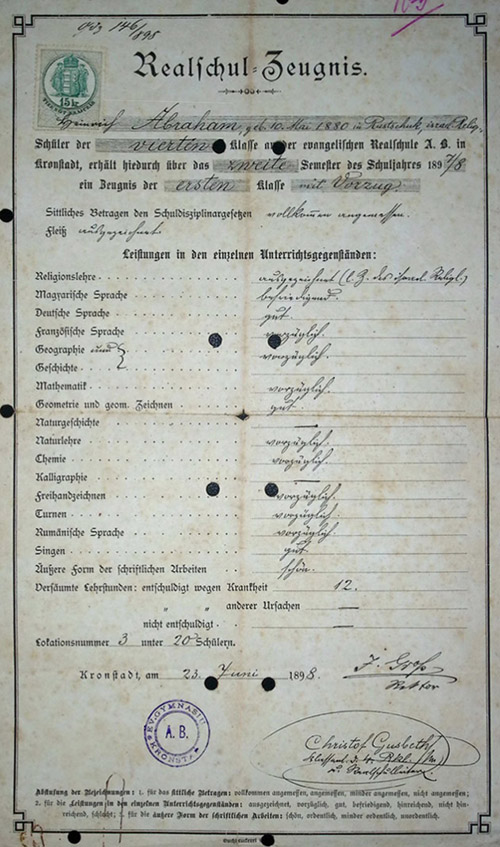 146/895
15 kr
Realschul-Zeugnis.
Heinrich Abraham, geb. 10. Mai 1880 in Rustschuk, israel. Relig.,
Schüler der vierten Klasse an der evangelischen Realschule A. B. in
Kronstadt, erhält hiedurch über das zweite Semester des Schuljahres 1897/8
ein Zeugnis der ersten Klasse mit Vorzug.
Sittliches Betragen den Schuldisziplinargesetzen vollkommen angemessen.
Fleiß ausgezeichnet.
Leistungen in den einzelnen Unterrichtsgegenständen:
Religionslehre ausgezeichnet (l. Z. des israel. Religl.)
Magyarische Sprache befriedigend.
Deutsche Sprache gut
Französische Sprache vorzüglich.
Geographie und vorzüglich.
Geschichte
Mathematik vorzüglich.
Geometrie und geom. Zeichnen gut.
Naturgeschichte —
Naturlehre vorzüglich.
Chemie vorzüglich.
Kalligraphie —
Freihandzeichnen vorzüglich.
Turnen vorzüglich.
Rumänische Sprache vorzüglich
Singen gut.
Äußere Form der schriftlichen Arbeiten schön.
Versäumte Lehrstunden: entschuldigt wegen Krankheit 12.
" " anderer Ursachen —
nicht entschuldigt —
Lokationsnummer 3 unter 20 Schülern.
Kronstadt, am 23. Juni 1898.
J. Groß
Rektor
EV. GYMNASIU
A. B.
KRONSTA
Christof Gusbeth
Abstufung der Bezeichnungen: 1. für das sittliche Betragen: vollkommen angemessen, angemessen, minder angemessen, nicht angemessen;
2. für die Leistungen in den einzelnen Unterrichtsgegenständen: ausgezeichnet, vorzüglich, gut, befriedigend, hinreichend, nicht hin-
reichend, schlecht; 3. für die äußere Form der schriftlichen Arbeiten: schön, ordentlich, minder ordentlich, unordentlich.